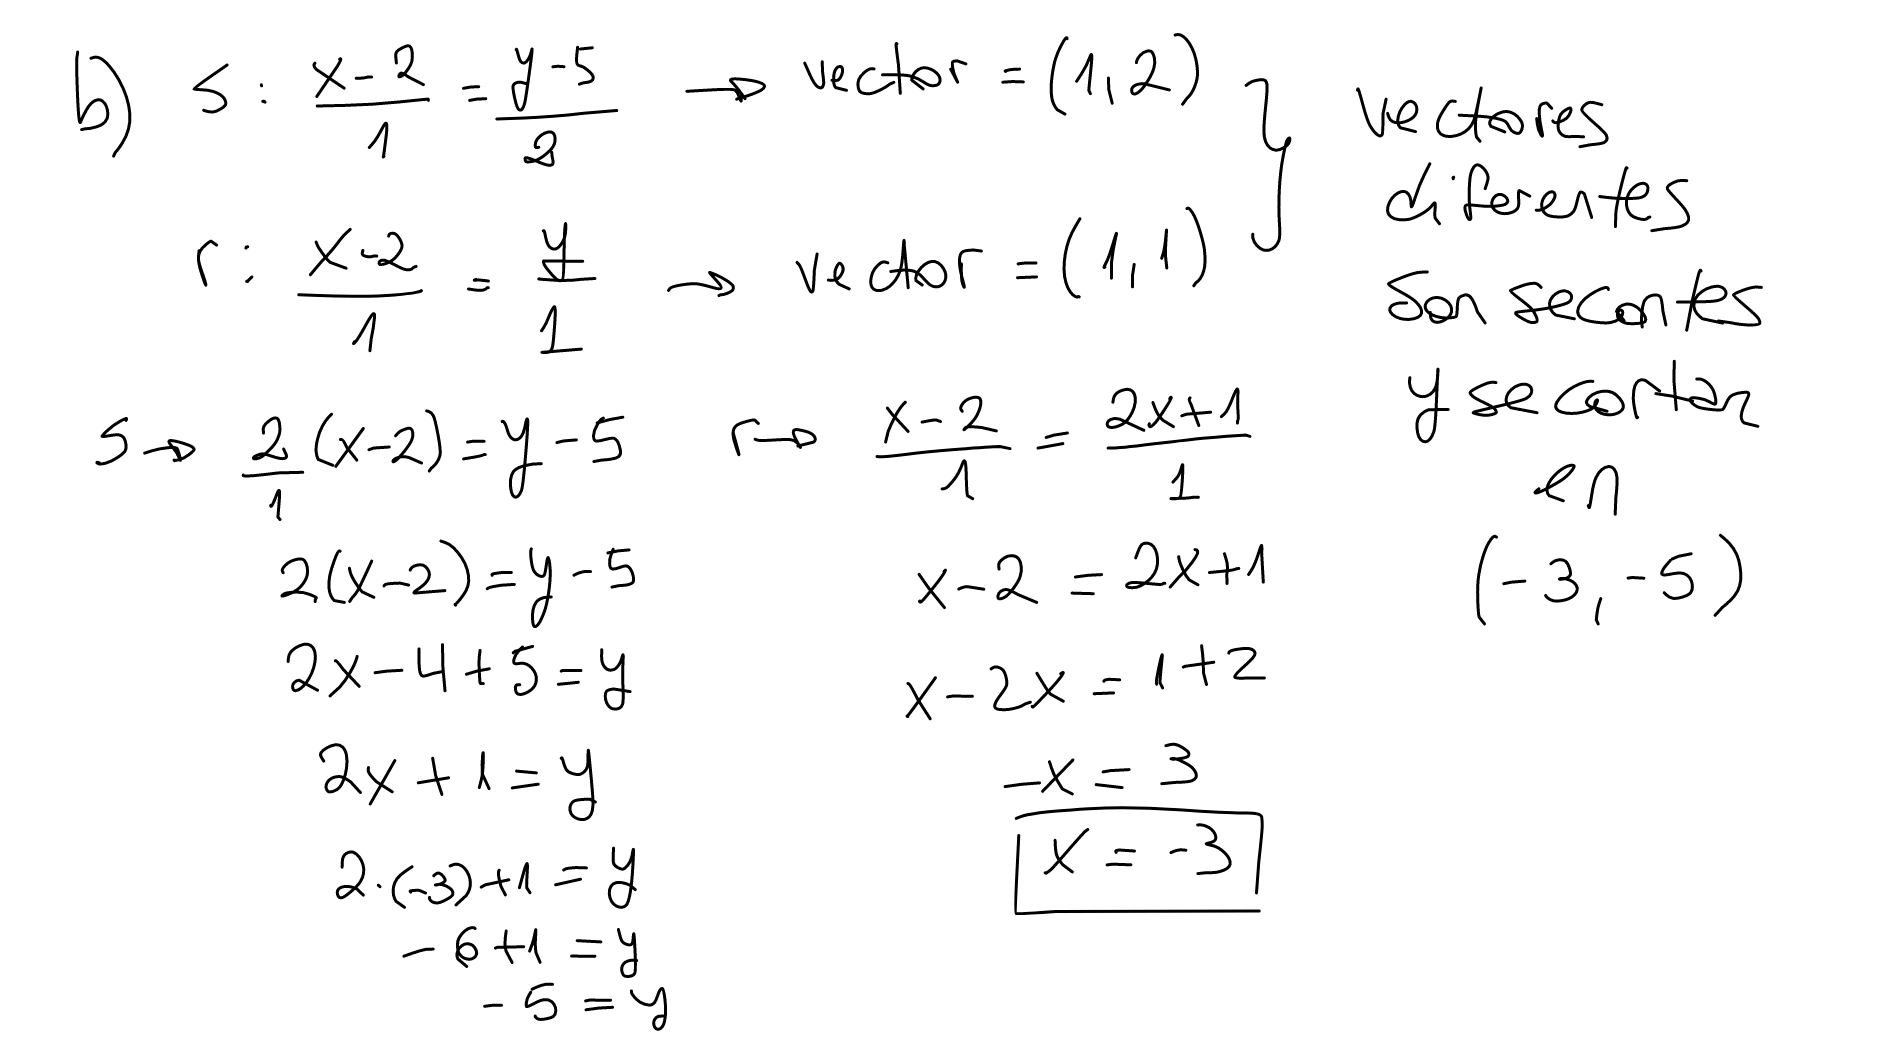 b) s: x-2/1 = y-5/2 → vector = (1,2)
r: x-2/1 = y/1 → vector = (1,1)
vectores
diferentes
son secantes
y se cortan
en
(-3,-5)
s→ 2/1 (x-2) = y-5
2(x-2) = y-5
2x-4+5 = y
2x+1 = y
2·(-3)+1 = y
-6+1 = y
-5 = y
r→ x-2/1 = 2x+1/1
x-2 = 2x+1
x-2x = 1+2
-x = 3
x = -3